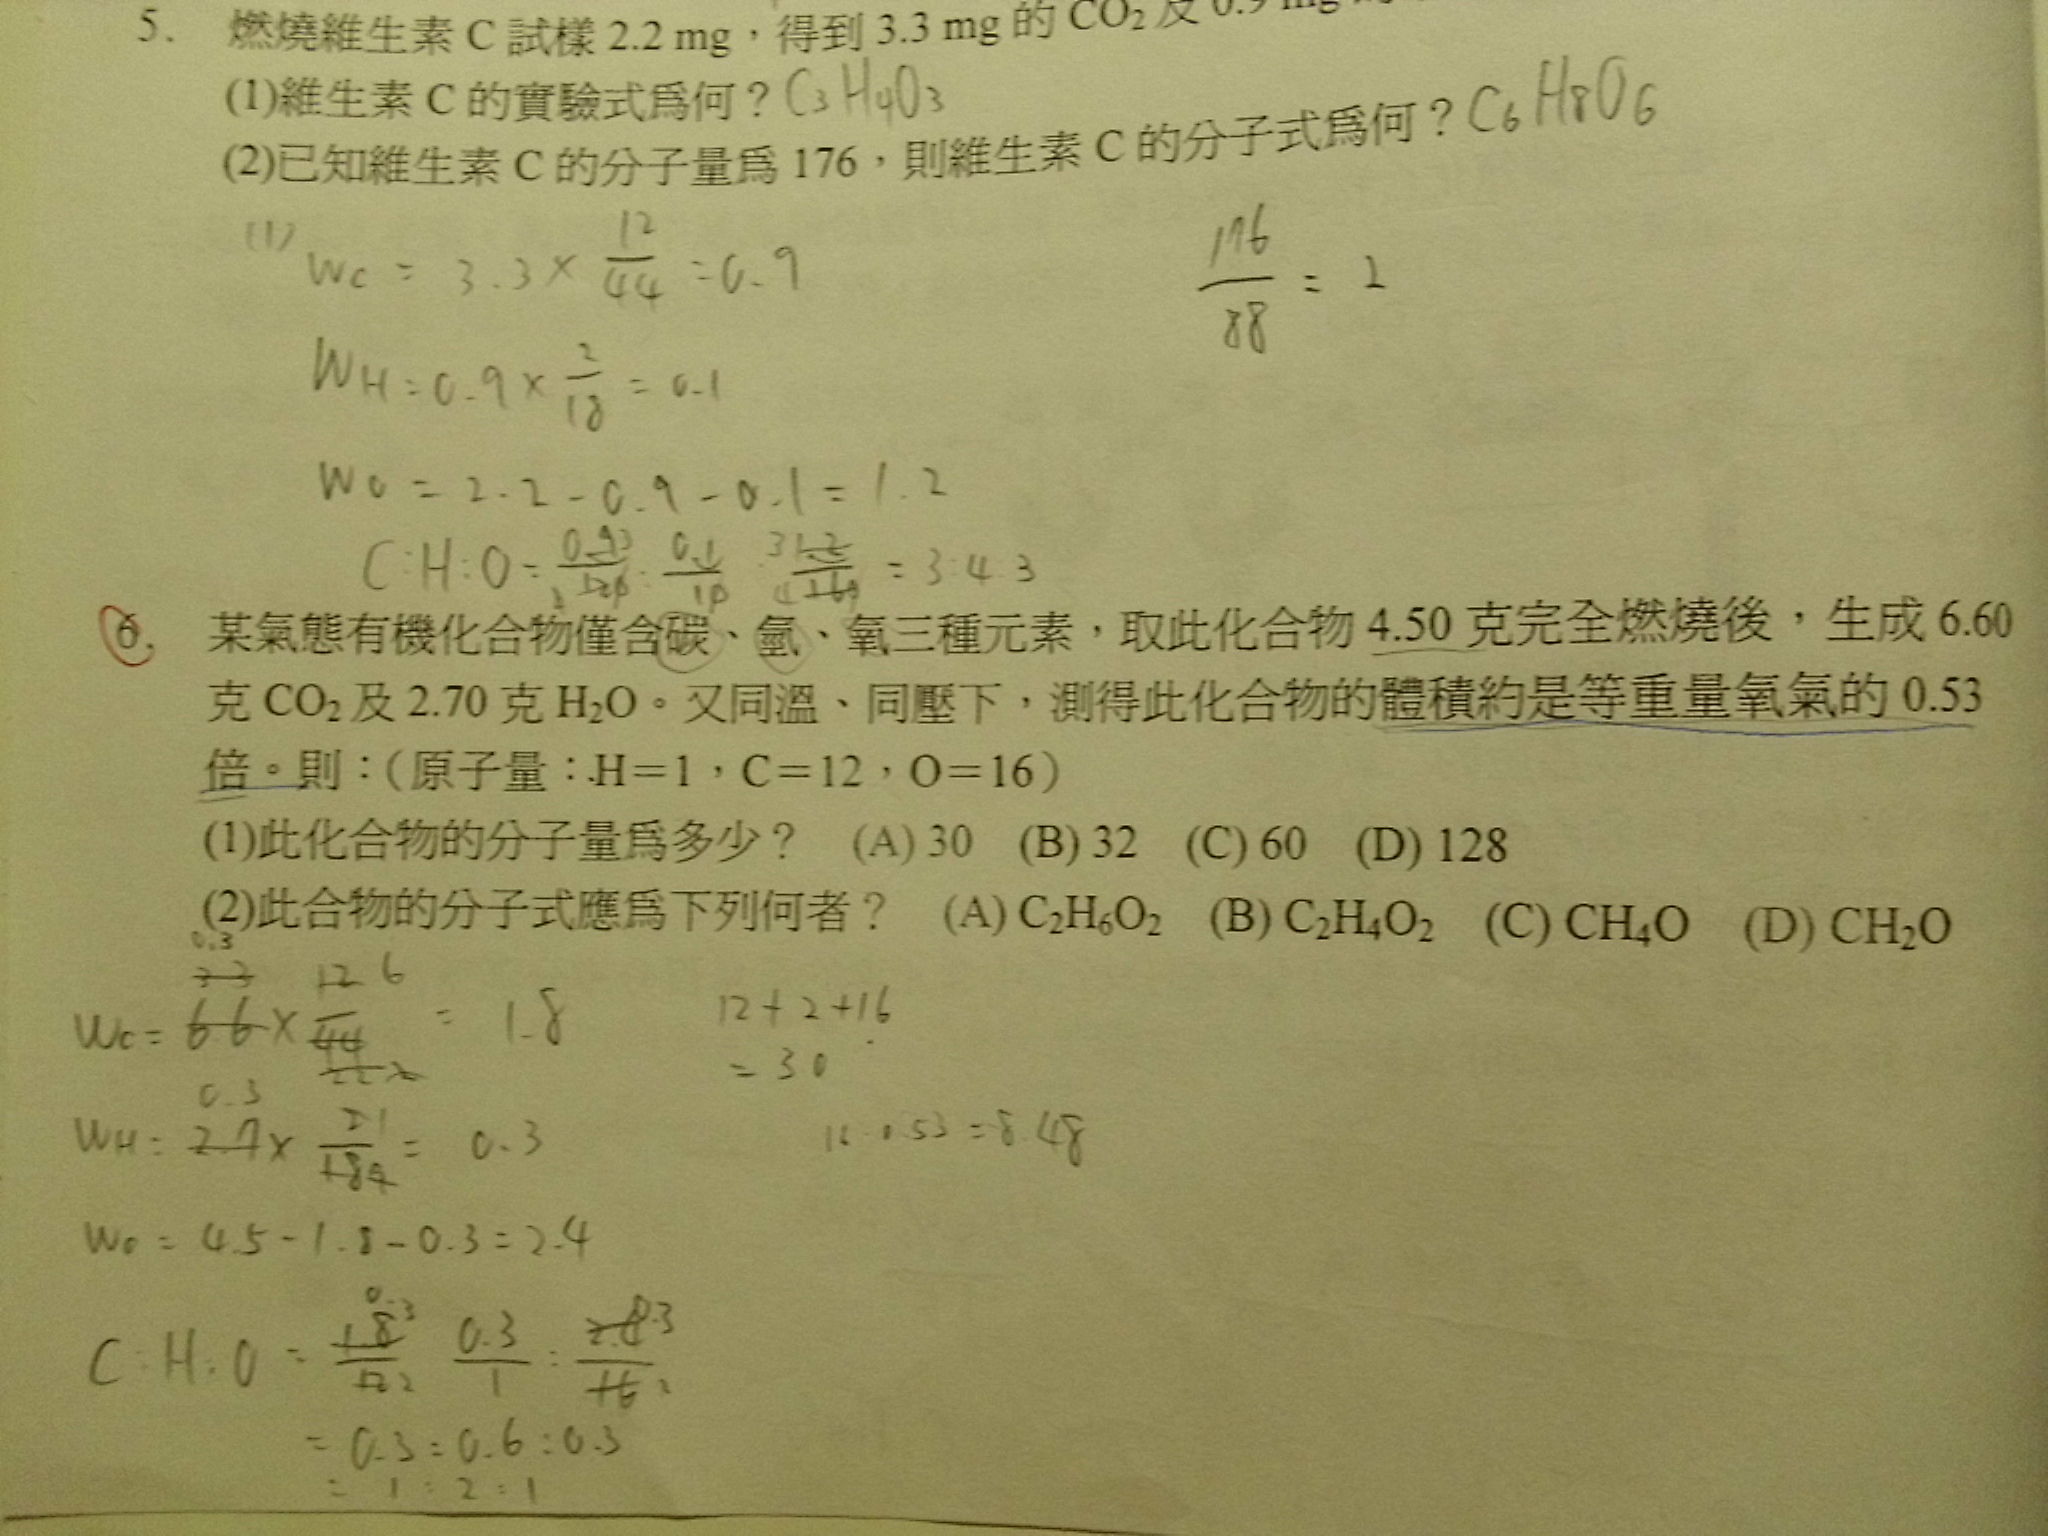 5. 燃燒維生素 C 試樣 2.2 mg，得到 3.3 mg 的 CO₂ 及 0.9 mg
(1)維生素 C 的實驗式爲何？C₃H₄O₃
(2)已知維生素 C 的分子量爲 176，則維生素 C 的分子式爲何？C₆H₈O₆
(1) Wc = 3.3 × 12/44 = 0.9
176/88 = 2
WH = 0.9 × 2/18 = 0.1
Wo = 2.2 - 0.9 - 0.1 = 1.2
C:H:O = = 3:4:3
6. 某氣態有機化合物僅含碳、氫、氧三種元素，取此化合物 4.50 克完全燃燒後，生成 6.60
克 CO₂ 及 2.70 克 H₂O。又同溫、同壓下，測得此化合物的體積約是等重量氧氣的 0.53
倍。則：（原子量：H＝1，C＝12，O＝16）
(1)此化合物的分子量爲多少？ (A) 30 (B) 32 (C) 60 (D) 128
(2)此合物的分子式應爲下列何者？ (A) C₂H₆O₂ (B) C₂H₄O₂ (C) CH₄O (D) CH₂O
Wc = 6.6 × 12/44 = 1.8
12 + 2 + 16
= 30
WH = 2.7 × 2/18 = 0.3
16 · 0.53 = 8.48
Wo = 4.5 - 1.8 - 0.3 = 2.4
C:H:O = 1.8/12 : 0.3/1 :
= 0.3 : 0.6 : 0.3
= 1 : 2 : 1